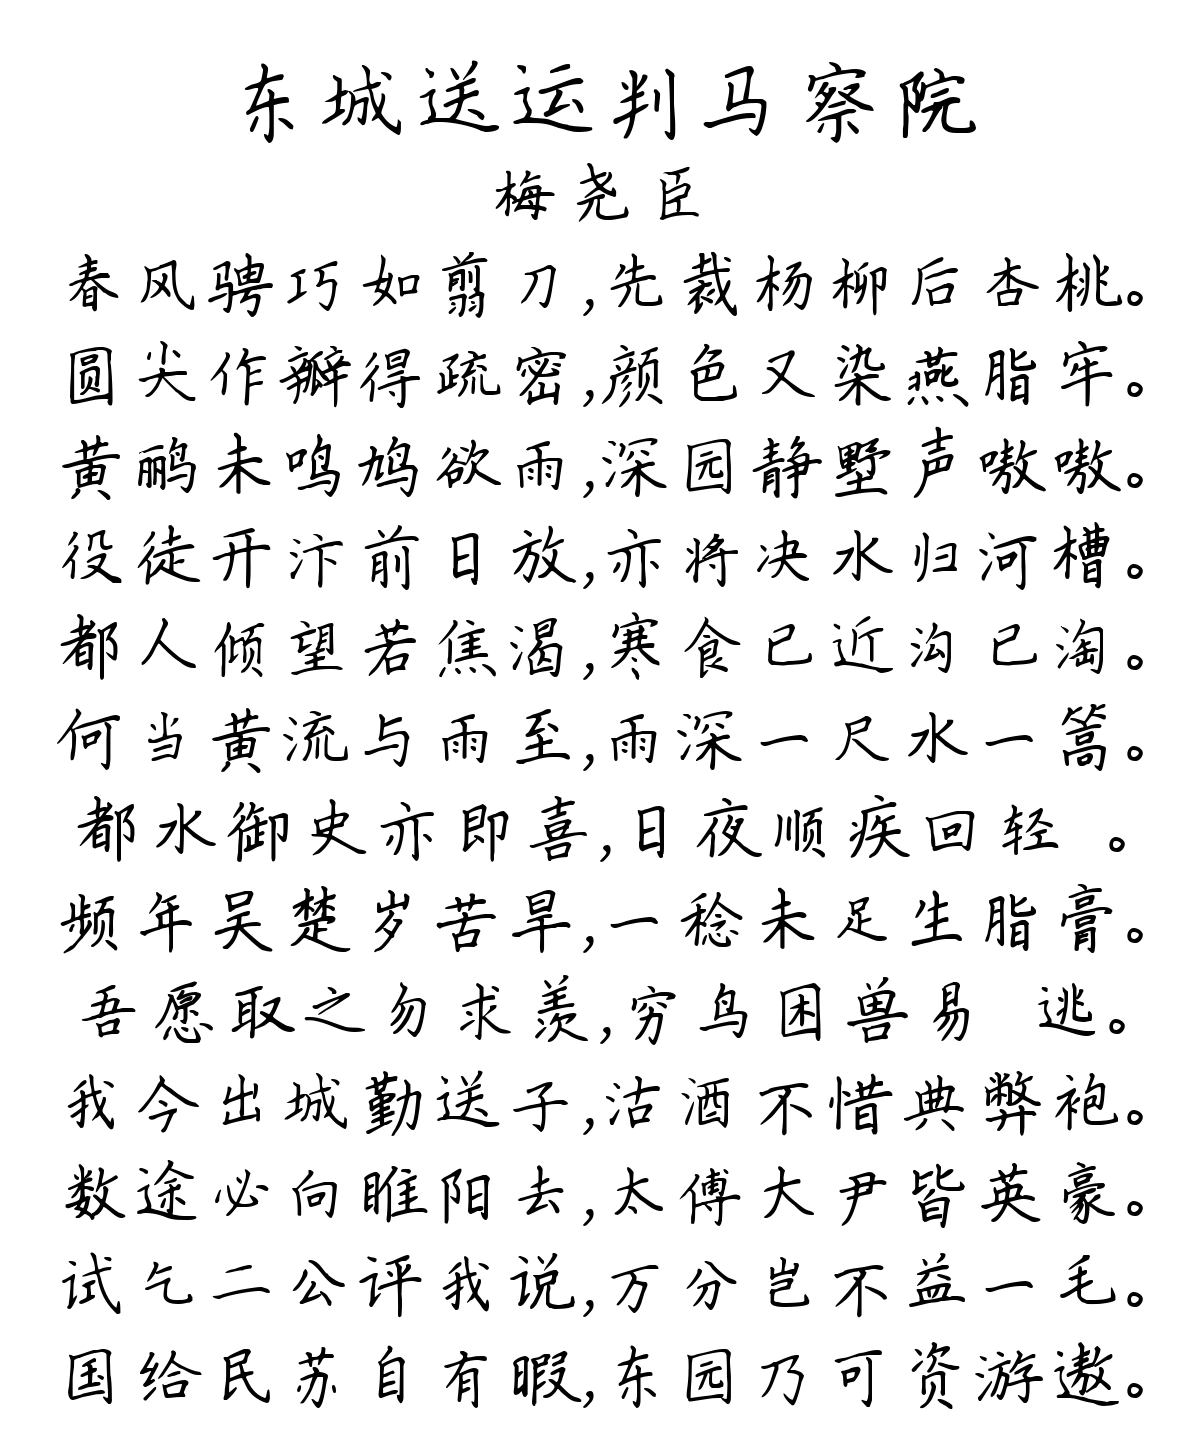 东城送运判马察院
梅尧臣
春风骋巧如翦刀,先裁杨柳后杏桃。
圆尖作瓣得疏密,颜色又染燕脂牢。
黄鹂未鸣鸠欲雨,深园静墅声嗷嗷。
役徒开汴前日放,亦将决水归河槽。
都人倾望若焦渴,寒食已近沟已淘。
何当黄流与雨至,雨深一尺水一篙。
都水御史亦即喜,日夜顺疾回轻 。
频年吴楚岁苦旱,一稔未足生脂膏。
吾愿取之勿求羡,穷鸟困兽易 逃。
我今出城勤送子,沽酒不惜典弊袍。
数途必向睢阳去,太傅大尹皆英豪。
试乞二公评我说,万分岂不益一毛。
国给民苏自有暇,东园乃可资游遨。